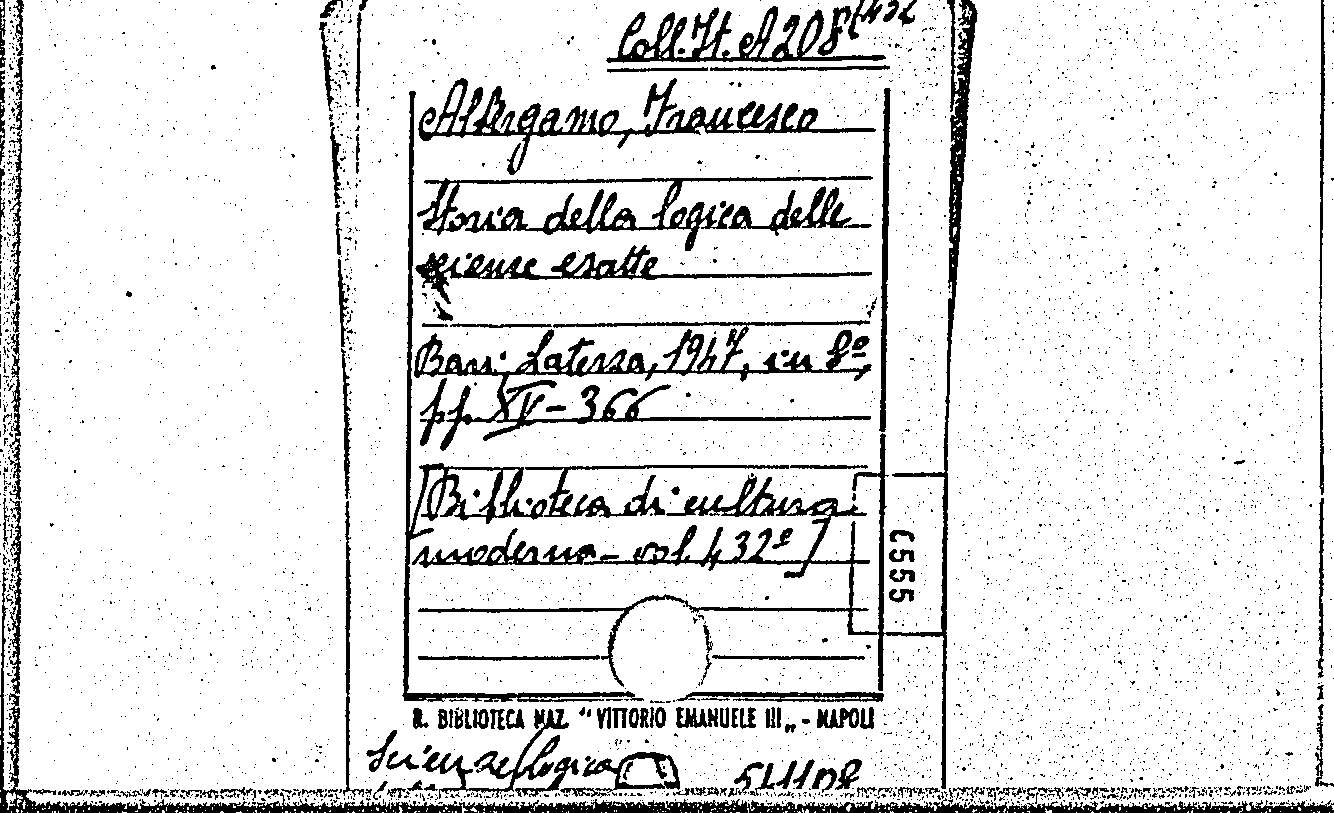 Coll. It. A 208 (432
Albergamo, Francesco
Storia della logica delle
scienze esatte
Bari, Laterza, 1947, in 8º,
pp. XV - 366
[Biblioteca di cultura
moderna - vol. 432º]
6555
R. BIBLIOTECA NAZ. "VITTORIO EMANUELE III„ - NAPOLI
Scienze logica